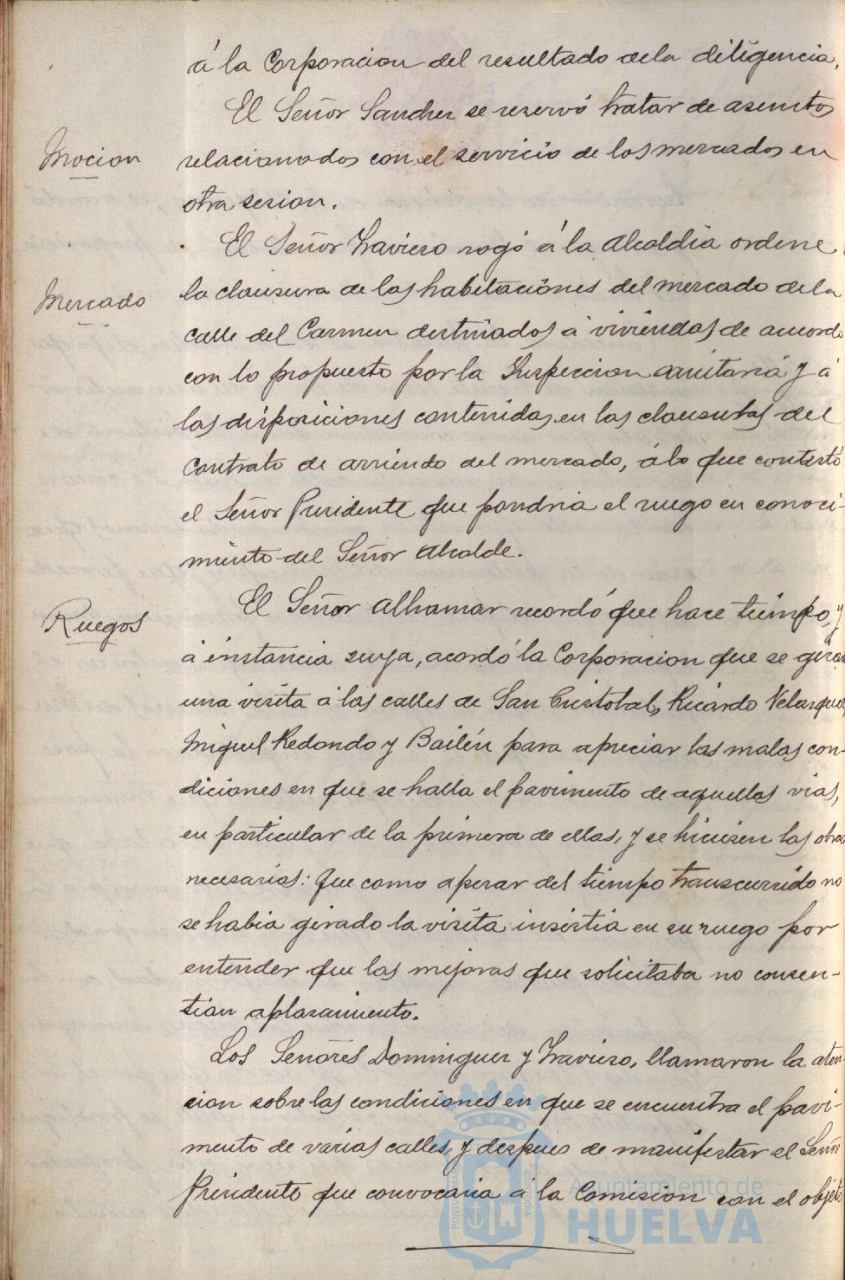 á la Corporacion del resultado dela diligencia.
El Señor Sanchez se reservó tratar de asuntos
Mocion
relacionados con el servicio de los mercados en
otra sesion.
El Señor Travieso rogó á la Alcaldia ordene
Mercado
la clausura de las habitaciónes del mercado dela
calle del Carmen destinados á viviendas de acuerdo
con lo propuesto por la Inspeccion sanitaria y á
las disposiciones contenidas en las clausulas del
contrato de arriendo del mercado, á lo que contestó
el Señor Presidente que pondria el ruego en conoci-
miento del Señor Alcalde.
Ruegos
El Señor Alhamar recordó que hace tiempo, y
á instancia suya, acordó la Corporacion que se girara
una visita á las calles de San Cristobal, Ricardo Velazquez,
Miguel Redondo y Bailén para apreciar las malas con-
diciones en que se halla el pavimento de aquellas vias,
en particular de la primera de ellas, y se hiciesen las obras
necesarias: Que como apesar del tiempo transcurrido no
se habia girado la visita insistia en su ruego por
entender que las mejoras que solicitaba no consen-
tian aplazamiento.
Los Señores Dominguez y Travieso, llamaron la aten-
cion sobre las condiciones en que se encuentra el pavi-
mento de varias calles, y despues de manifestar el Señor
Presidente que convocaria á la Comision con el objeto
Ayuntamiento de
HUELVA